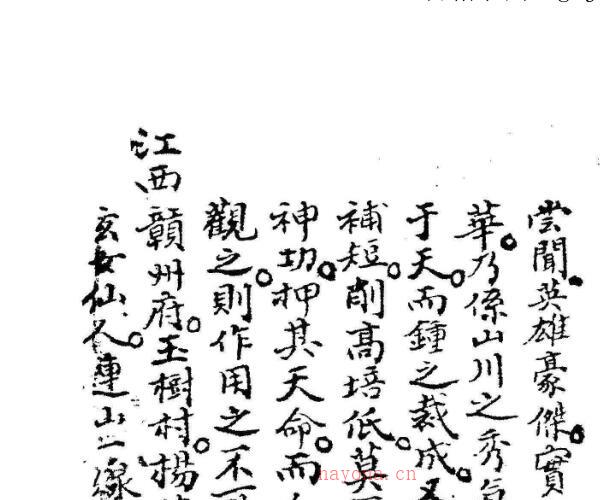 尝聞英雄豪傑實
華乃係山川之秀氣
于天而鍾之裁成
補短削高培低莫
神功押其天命而
觀之則作用之不
江西贛州府玉樹村楊
玄女仙人連山二線
hayona.cn